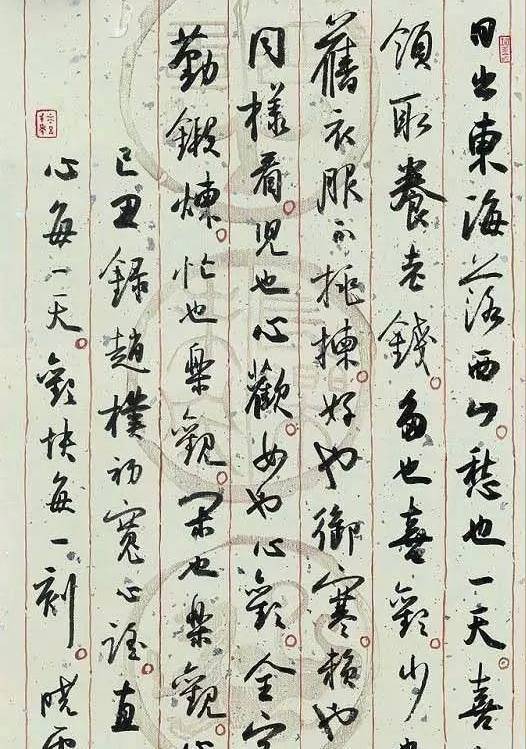 日出東海落西山愁也一天喜
領取養老錢多也喜歡少
舊衣服不挑揀好也御寒賴也
同樣看兒也心歡女也心歡全家
勤鍛煉忙也樂觀閑也樂觀
己丑錄趙樸初寬心謠
心每一天歡快每一刻曉